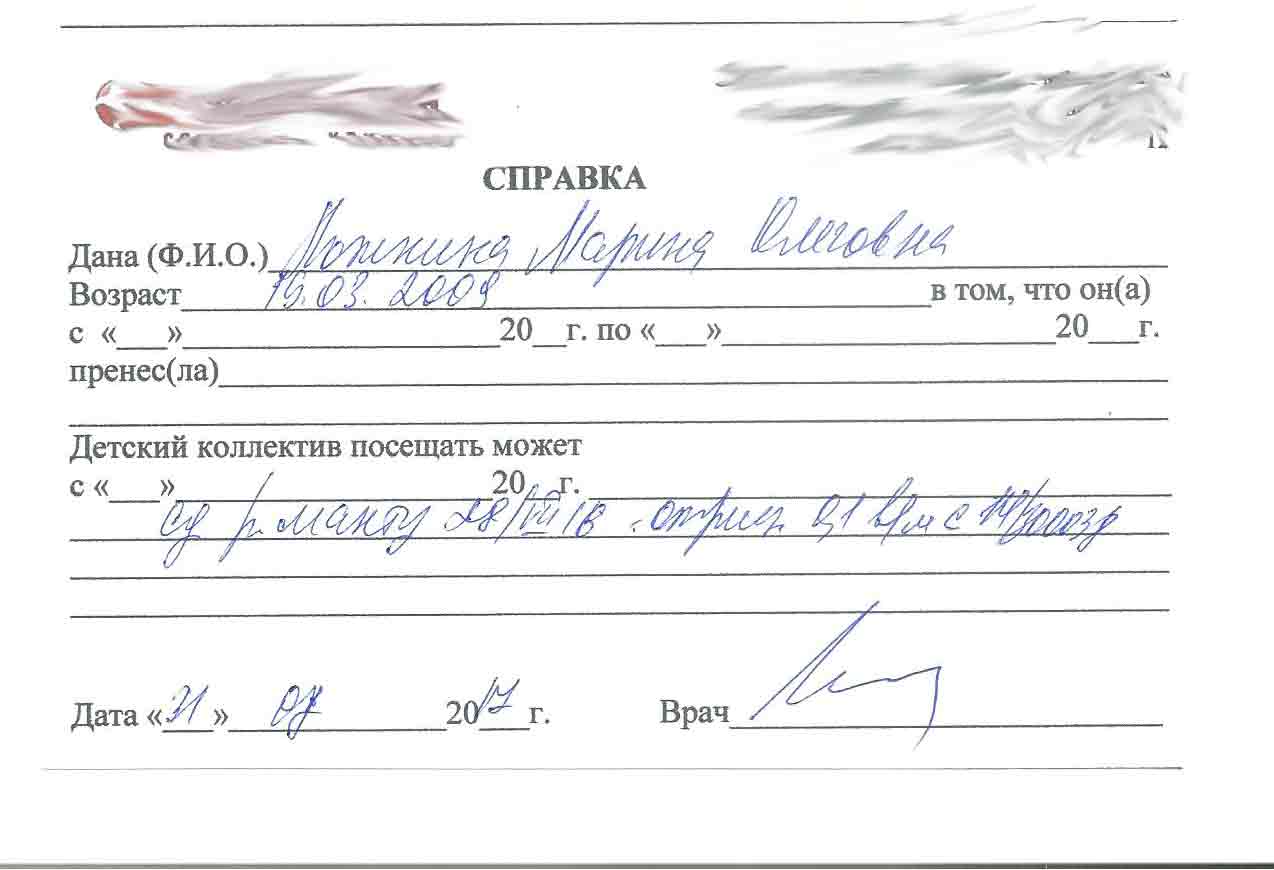 СПРАВКА
Дана (Ф.И.О.) Марина Олеговна
Возраст 19.03.2009 в том, что он(а)
с «___»___20__г. по «___»___20___г.
пренес(ла)
Детский коллектив посещать может
с «___»___20__г.
р. манту 28/VII 16 отриц. 0,1
Дата «31» 07 2017 г. Врач